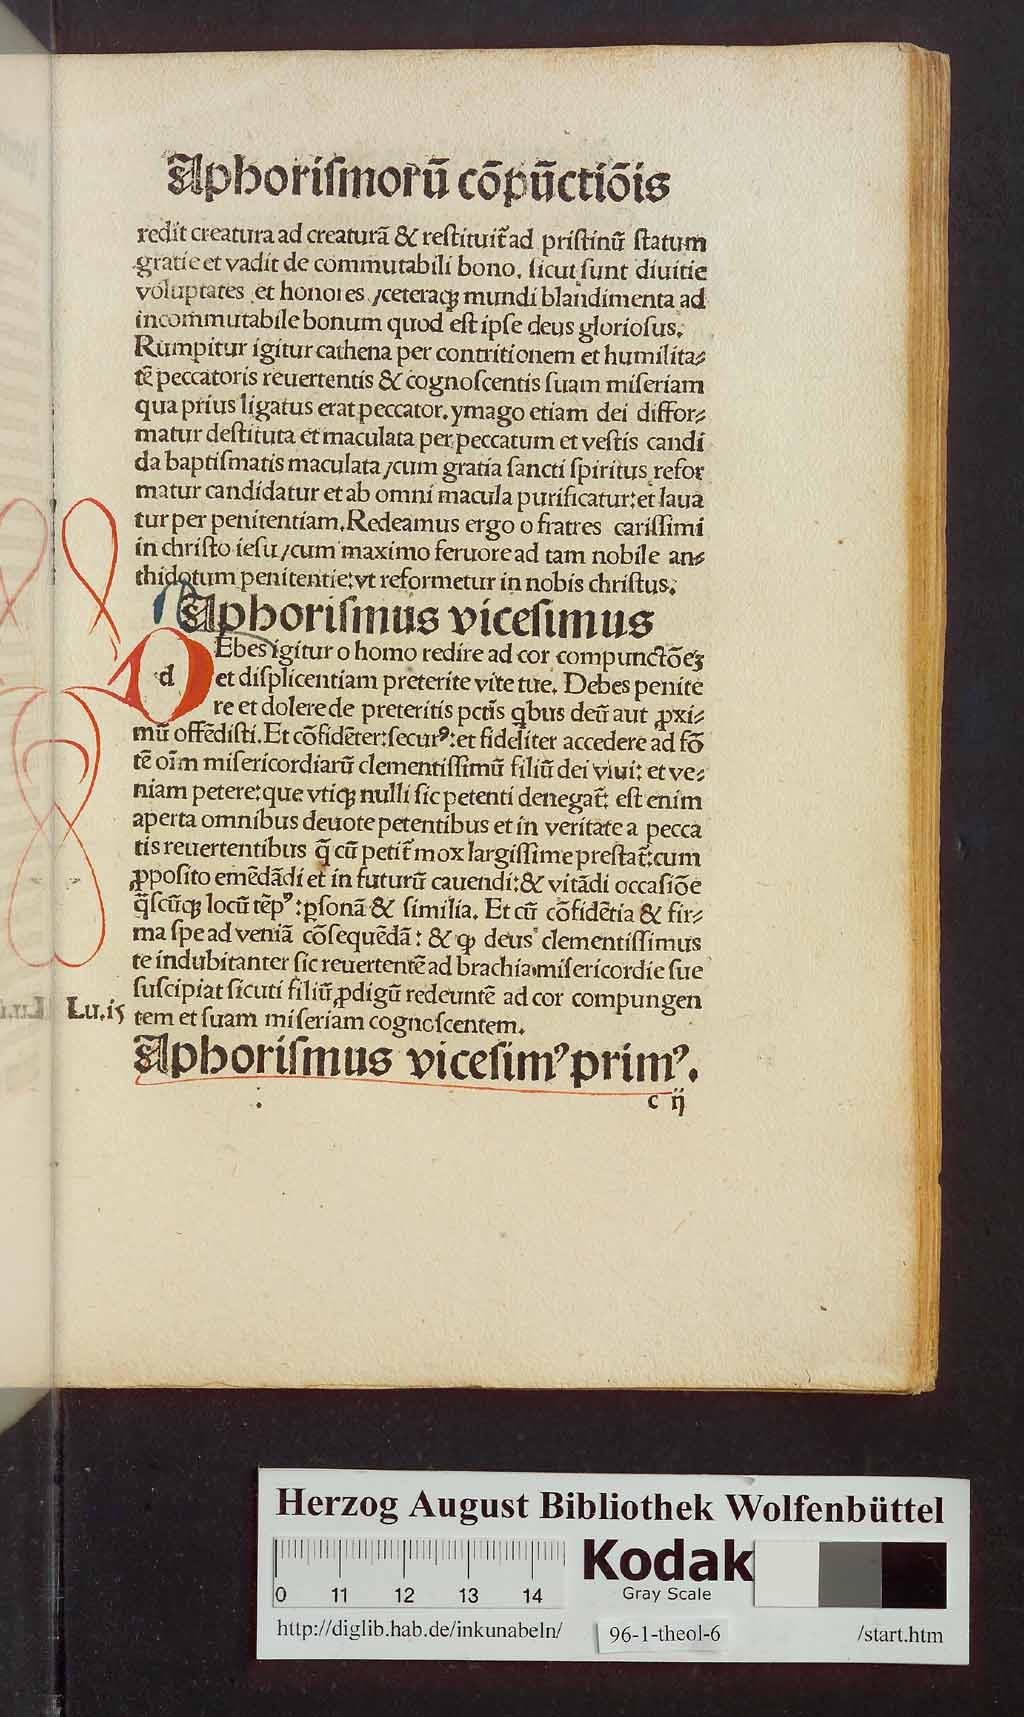 Aphoriſmorū cōpūctiōis
redit creatura ad creaturā & reſtituit᷑ ad priſtinū ſtatum
gratie et vadit de commutabili bono. ſicut ſunt diuitie
voluptates et honores /ceteraqꝫ mundi blandimenta ad
incommutabile bonum quod eſt ipſe deus glorioſus.
Rumpitur igitur cathena per contritionem et humilita⸗
tē peccatoris reuertentis & cognoſcentis ſuam miſeriam
qua prius ligatus erat peccator. ymago etiam dei diffor⸗
matur deſtituta et maculata per peccatum et veſtis candi
da baptiſmatis maculata /cum gratia ſancti ſpiritus refor
matur candidatur et ab omni macula purificatur: et laua
tur per penitentiam. Redeamus ergo o fratres cariſſimi
in chriſto ieſu /cum maximo feruore ad tam nobile an⸗
thidotum penitentie: vt reformetur in nobis chriſtus.
Aphoriſmus viceſimus
dEbes igitur o homo redire ad cor compunctōeꝫ
et diſplicentiam preterite vite tue. Debes penite
re et dolere de preteritis pctīs qͥbus deū aut ꝓxi⸗
mū offēdiſti. Et cōfidēter: ſecurꝰ: et fideliter accedere ad fō
tē oīm miſericordiarū clementiſſimū filiū dei viui: et ve⸗
niam petere: que vtiqꝫ nulli ſic petenti denegat᷑: eſt enim
aperta omnibus deuote petentibus et in veritate a pecca
tis reuertentibus q̄ cū petit᷑ mox largiſſime preſtat᷑: cum
ꝓpoſito emēdādi et in futurū cauendi: & vitādi occaſiōe
q̄ſcūqꝫ locū tēpꝰ: ꝑſonā & ſimilia. Et cū cōfidētia & fir⸗
ma ſpe ad veniā cōſequēdā: & ꝙ deus clementiſſimus
te indubitanter ſic reuertentē ad brachia miſericordie ſue
ſuſcipiat ſicuti filiū ꝓdigū redeuntē ad cor compungen
Lu.15 tem et ſuam miſeriam cognoſcentem.
Aphoriſmus viceſimꝰ primꝰ.
c ij
Herzog August Bibliothek Wolfenbüttel
Kodak
Gray Scale
0 11 12 13 14
http://diglib.hab.de/inkunabeln/ 96-1-theol-6 /start.htm